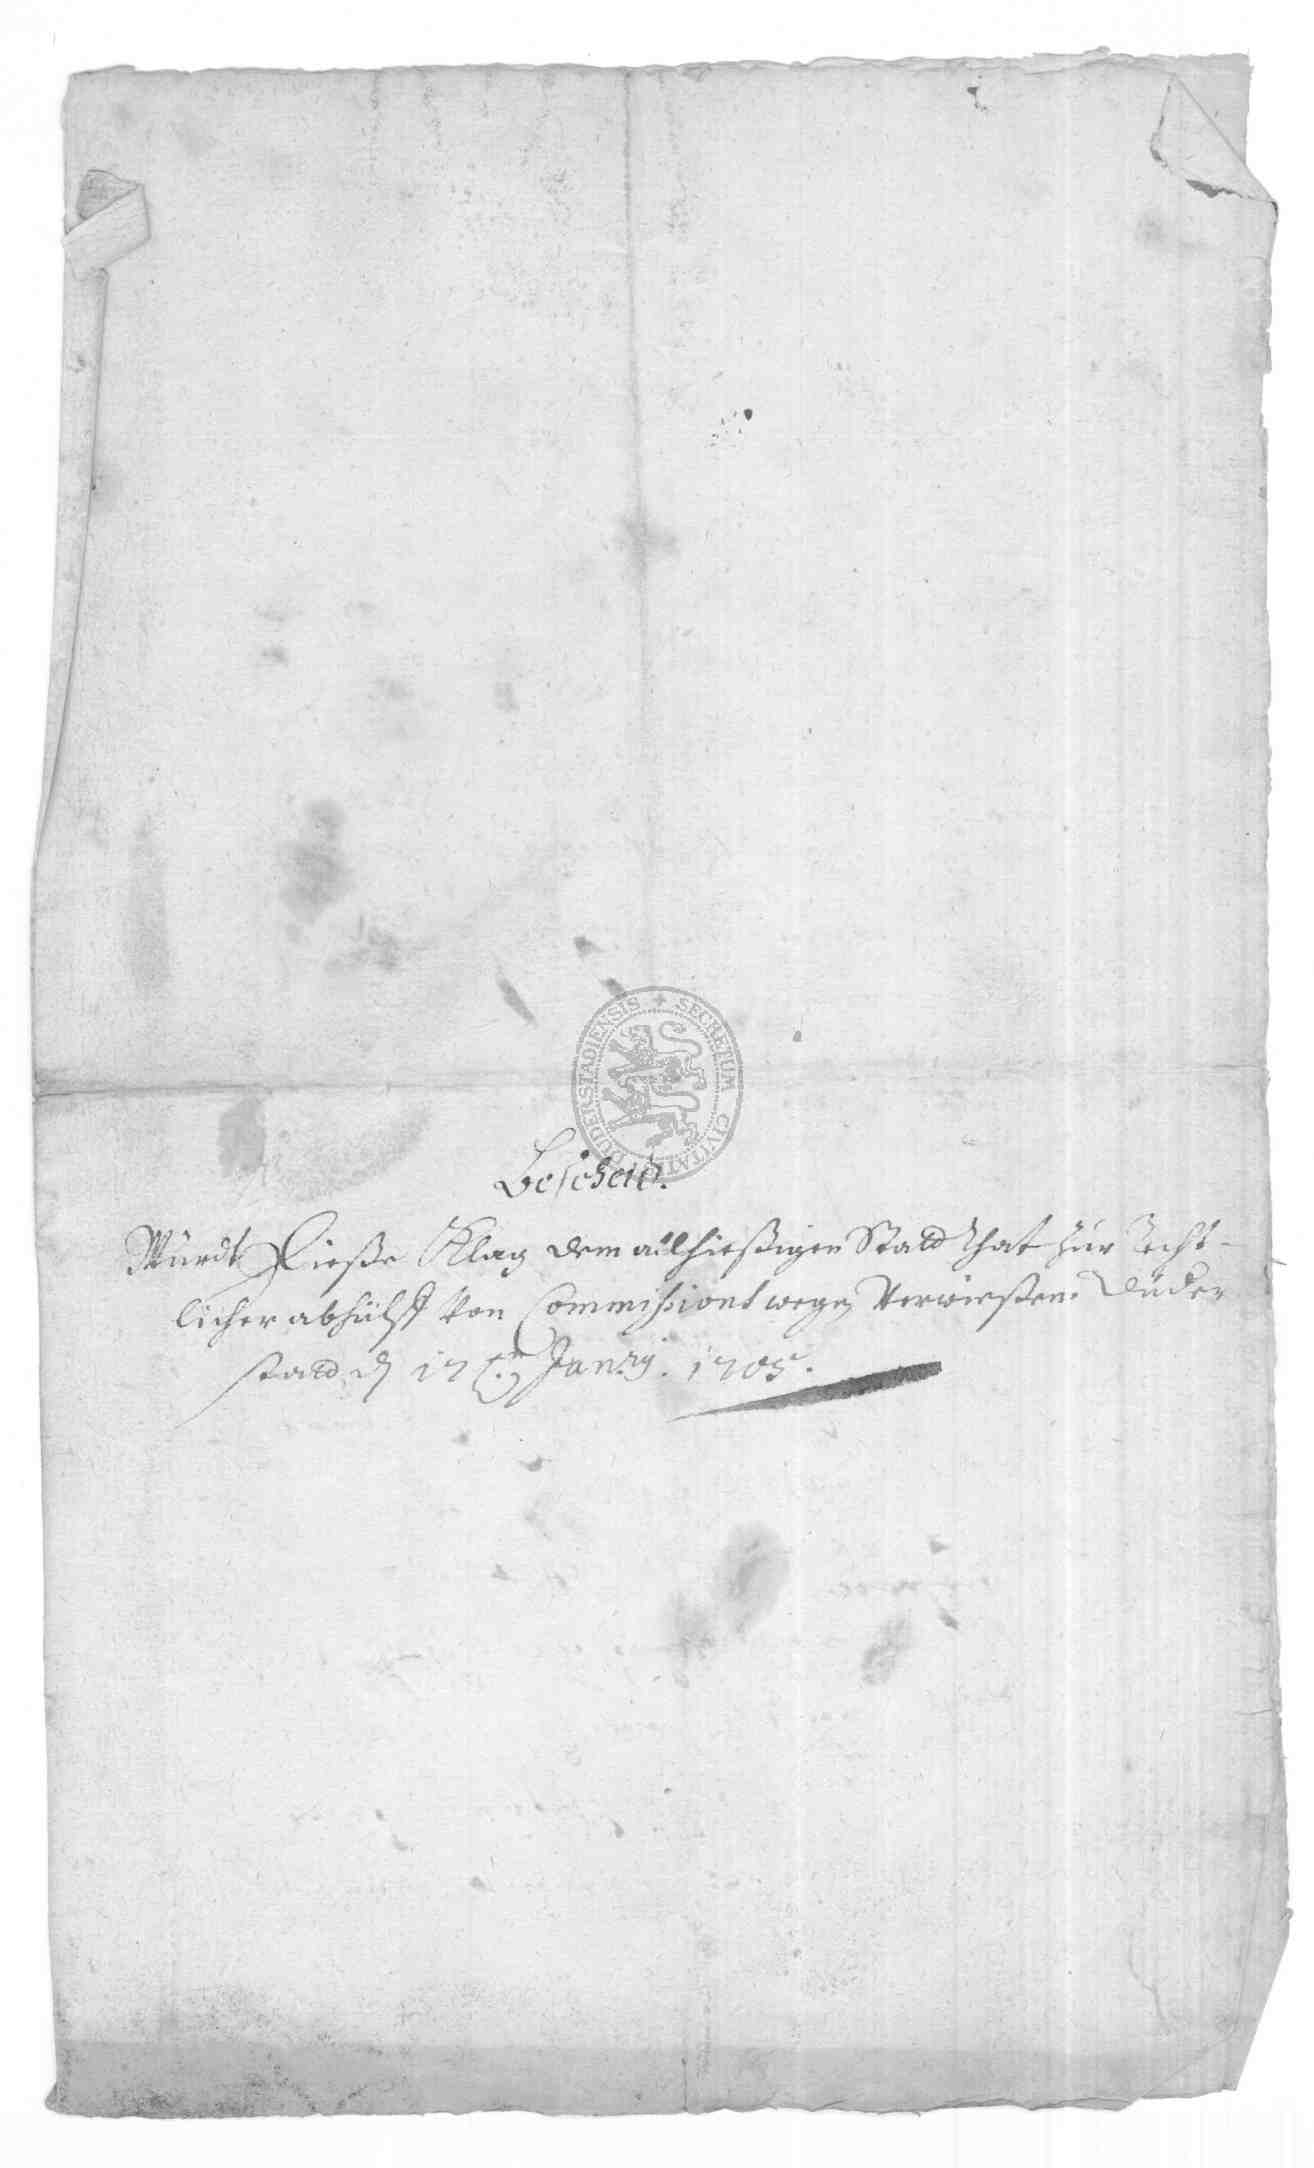 SECRETUM CIVITATIS DUDERSTADIENSIS
Bescheid.
Würdt Dieße Klag dem allhießigen Stadt Rhat zur recht-
licher abhülff von Commissions wegen verwießen. Duder
stadt d 17t. Janrÿ. 1705.